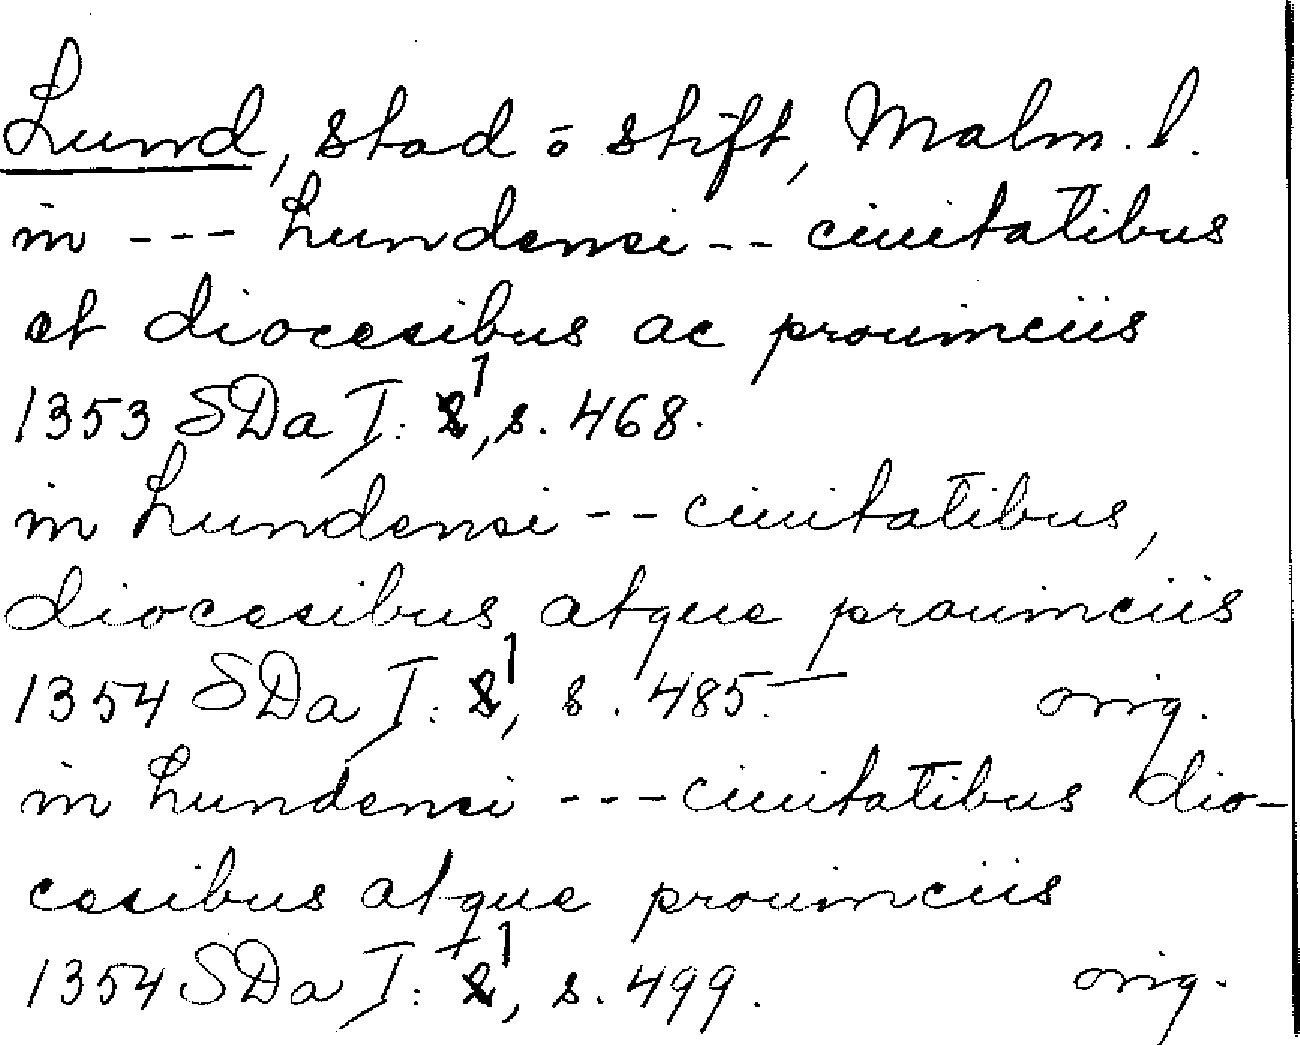 Lund, stad o stift, Malm. l.
in --- Lundensi -- ciuitatibus
et diocesibus ac prouinciis
1353 SDa I: 1, s. 468.
in Lundensi -- ciuitatibus,
diocesibus atque prouinciis
1354 SDa I: 1, s. 485. orig.
in Lundensi --- ciuitatibus dio-
cesibus atque prouinciis
1354 SDa I: 1, s. 499. orig.